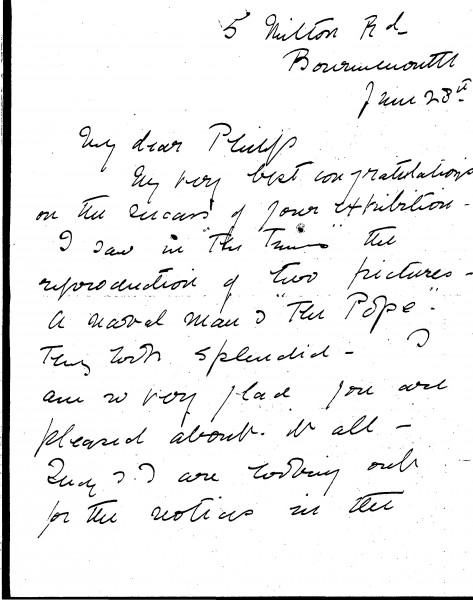 5 Milton Rd
Bournemouth
June 28th
My dear Philip
My very best congratulations
on the success of your exhibition -
I saw in "The Times" the
reproduction of two pictures -
A naval man & "The Pope".
They look splendid - I
am so very glad you are
pleased about it all -
& I are looking out
for the notices in the